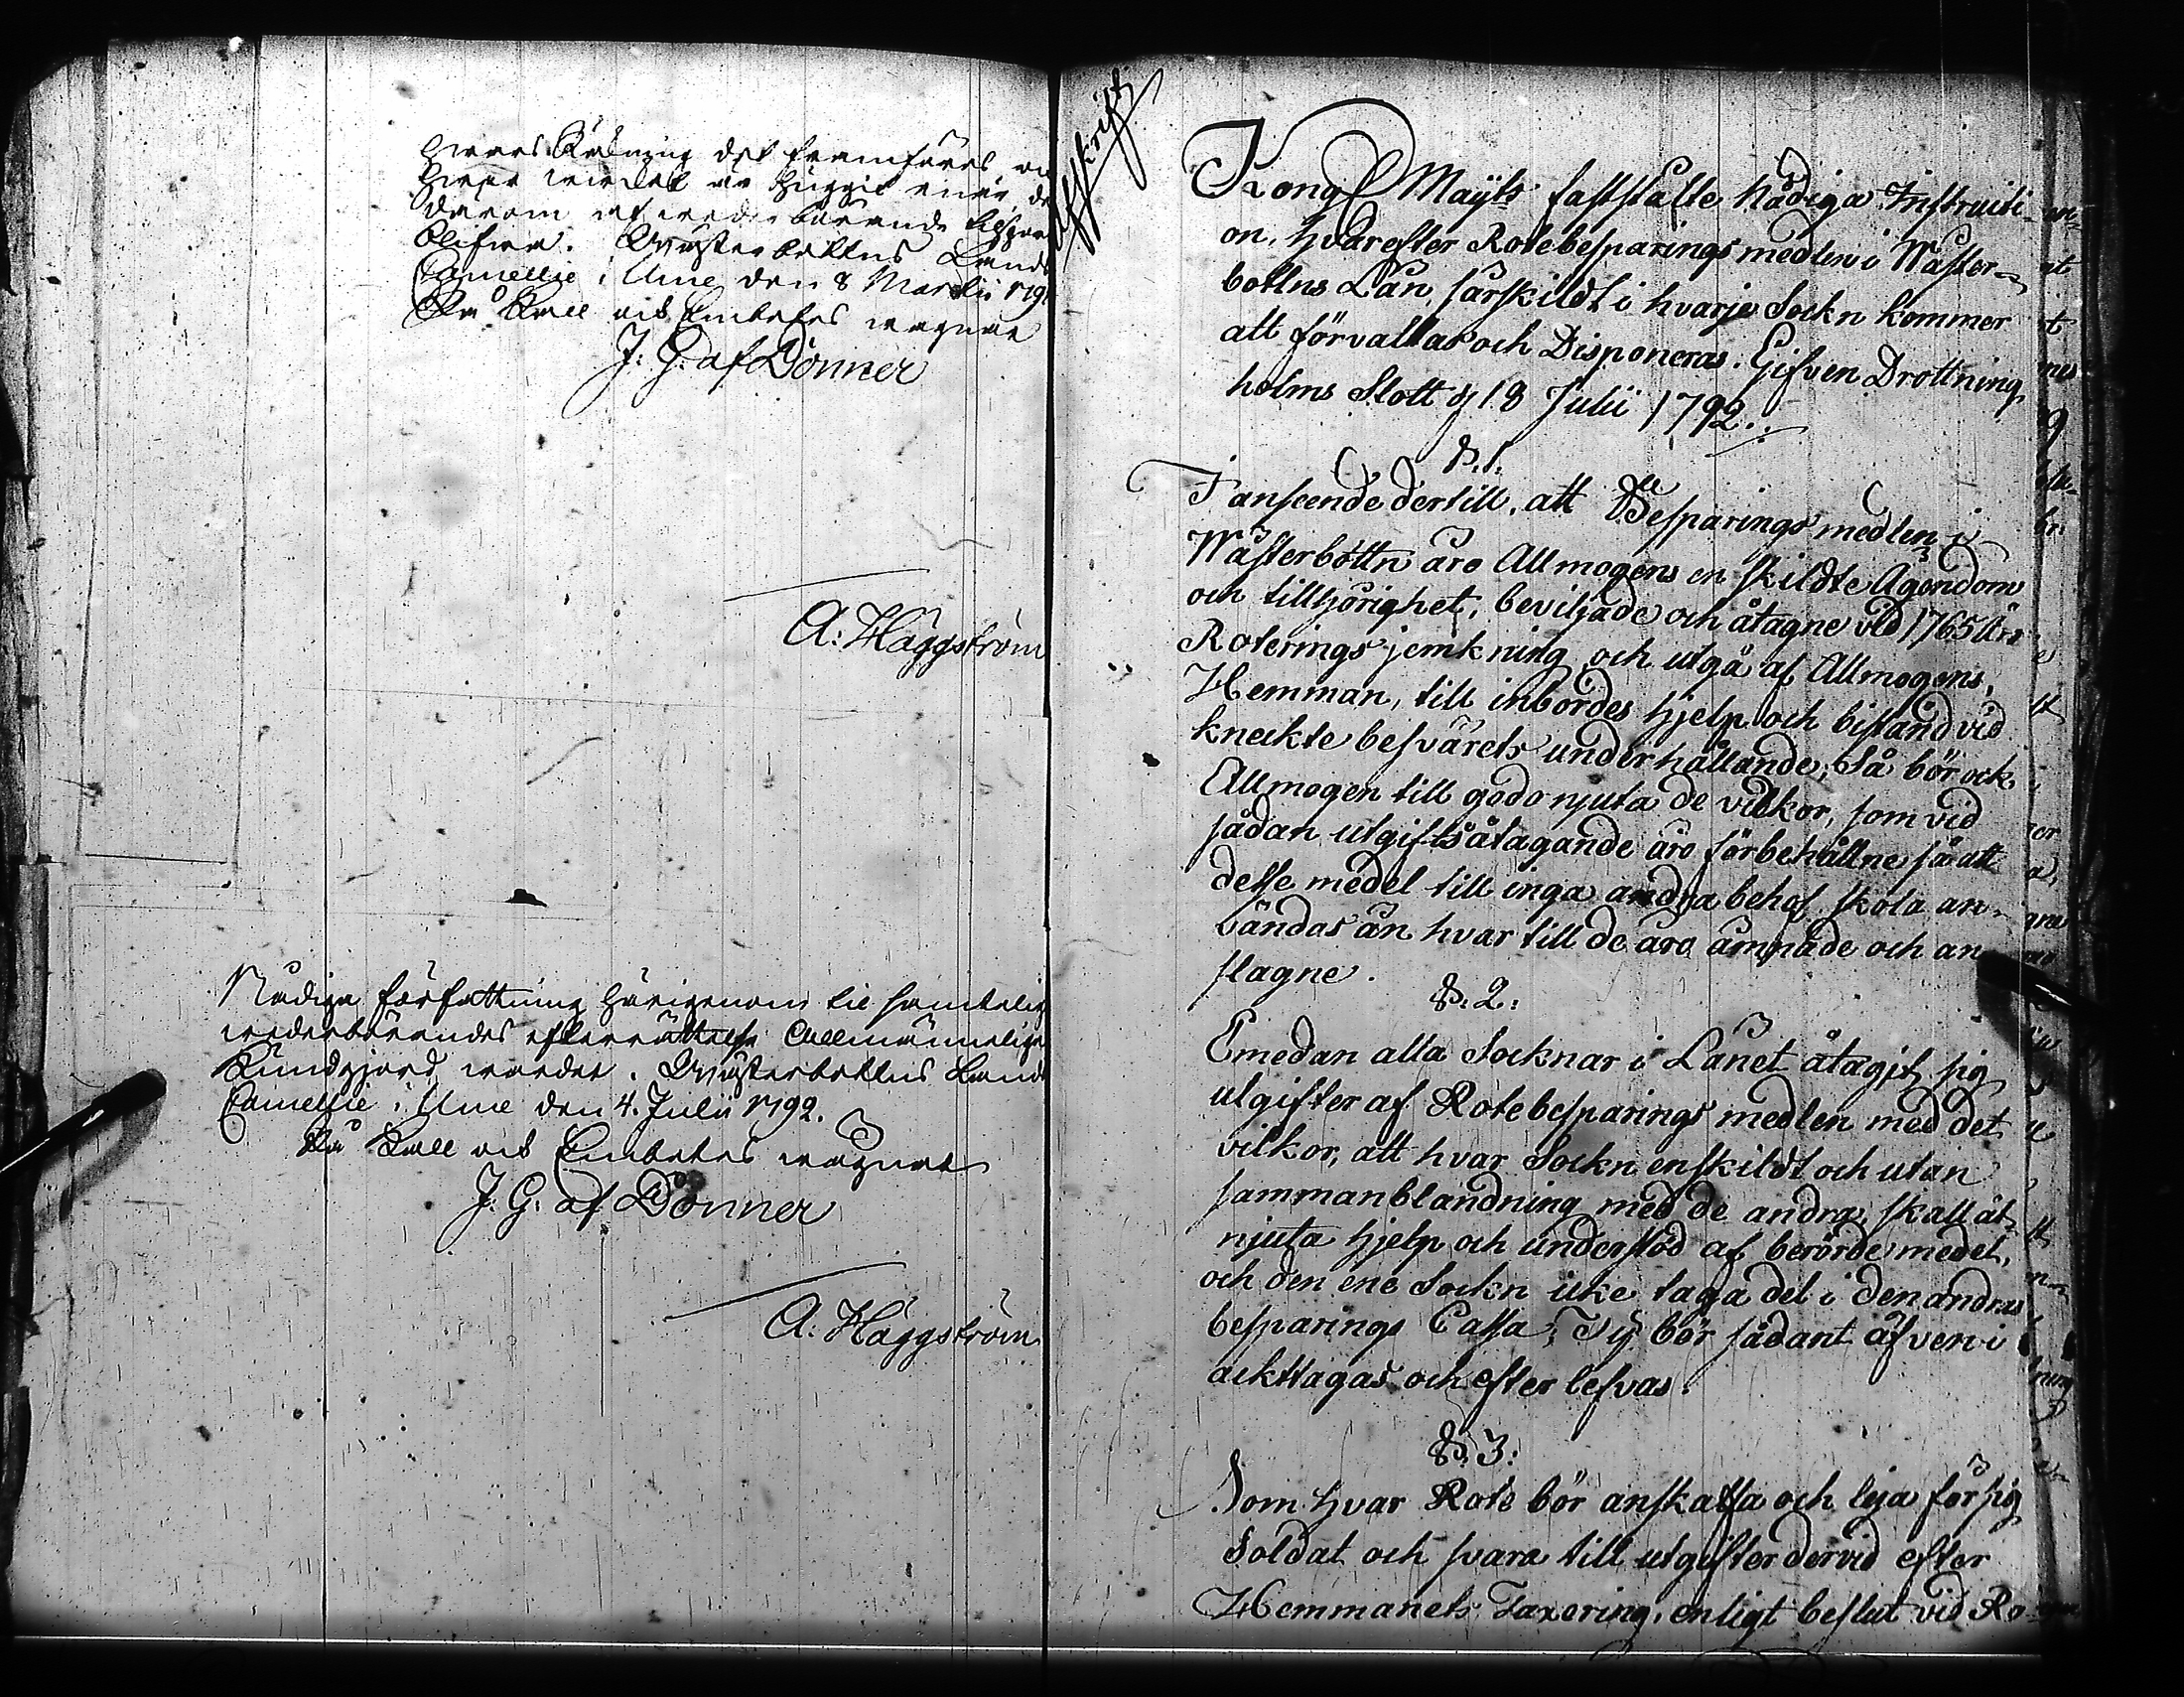 det framföres
därom af wederbörande
blifwa. Wästerbottns Lands
Cancellie i Ume den 8 Martii 179
På Kall och Embetes wägnar
J: G: af Donner
A: Häggström
Nådiga författning härigenom til samtelig
wederbörandes efterrättelse allmänneligen
Kundgjord warder. Wästerbottns Lands
Cancellie i Ume den 4. Julii 1792.
På Kall och Embetes wägnar
J: G: af Donner
A: Häggström
Afskrift
Kongl Maÿts fastställte Nådiga Instructi-
on, hvarefter Rotebesparings medlen i Wäster-
bottns Län, särskildt i hvarje Sockn kommer
att förvaltas och Disponeras. Gifven Drottning
holms Slott d 18 Julii 1792.
§. 1.
I anseende dertill, att Besparings medlen i
Wästerbottn äro Allmogens enskildte Ägendom
och tillhörighet, beviljade och åtagne vid 1765 Års
Roterings jemkning och utgå af Allmogens,
Hemman, till inbördes hjelp och bistånd vid
kneckte besvärets underhållande; Så bör ock
Allmogen till godo njuta de vilkor, som vid
sådan utgifts åtagande äro förbehållne så att
desse medel till inga andra behof skola an-
vändas än hvar till de äro ämnade och an
slagne.
§: 2:
Emedan alla Socknar i Länet åtagit sig
utgifter af Rotebesparings medlen med det
vilkor, att hvar Sockn enskildt och utan
sammanblandning med de andra, skall åt
njuta hjelp och understöd af berörde medel,
och den ene Sockn icke taga del i den andras
besparings Cassa; Ty bör sådant äfven i
ackttagas och efter lefvas.
§: 3:
Som hvar Rote bör anskaffa och leja för sig
Soldat och svara till utgifter dervid efter
Hemmanets Taxering, enligt beslut vid Ro